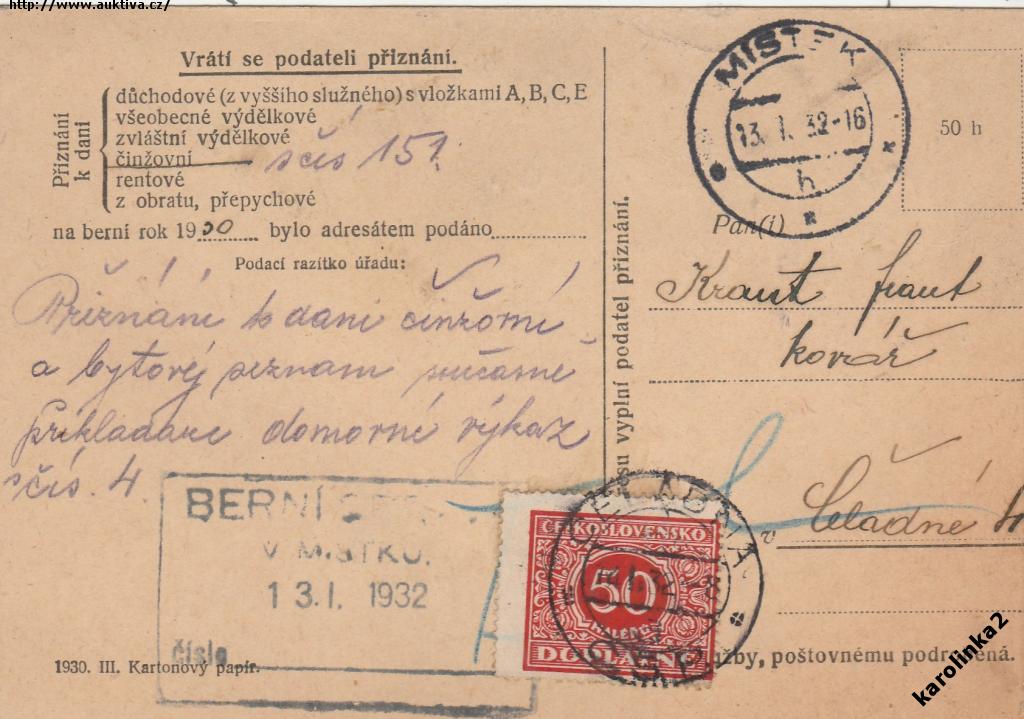 http://www.auktiva.cz/
Vrátí se podateli přiznání.
Přiznání k dani
důchodové (z vyššího služného) s vložkami A, B, C, E
všeobecné výdělkové
zvláštní výdělkové
činžovní
sčís 151
rentové
z obratu, přepychové
na berní rok 1930 bylo adresátem podáno
Podací razítko úřadu:
Přiznání k dani činžovní
a bytový seznam současně
domovné výkaz
sčís. 4.
BERNÍ
V MÍSTKU.
13. I. 1932
číslo
1930. III. Kartonový papír.
su vyplní podatel přiznání.
MÍSTEK
13. I. 32-16
h
50 h
Pan(i)
Kraut
kovář
Čeladné
ČESKOSLOVENSKO
50
HALÉŘŮ
DOPLATNÉ
ČELADNÁ
užby, poštovnému podrobená.
karolinka2